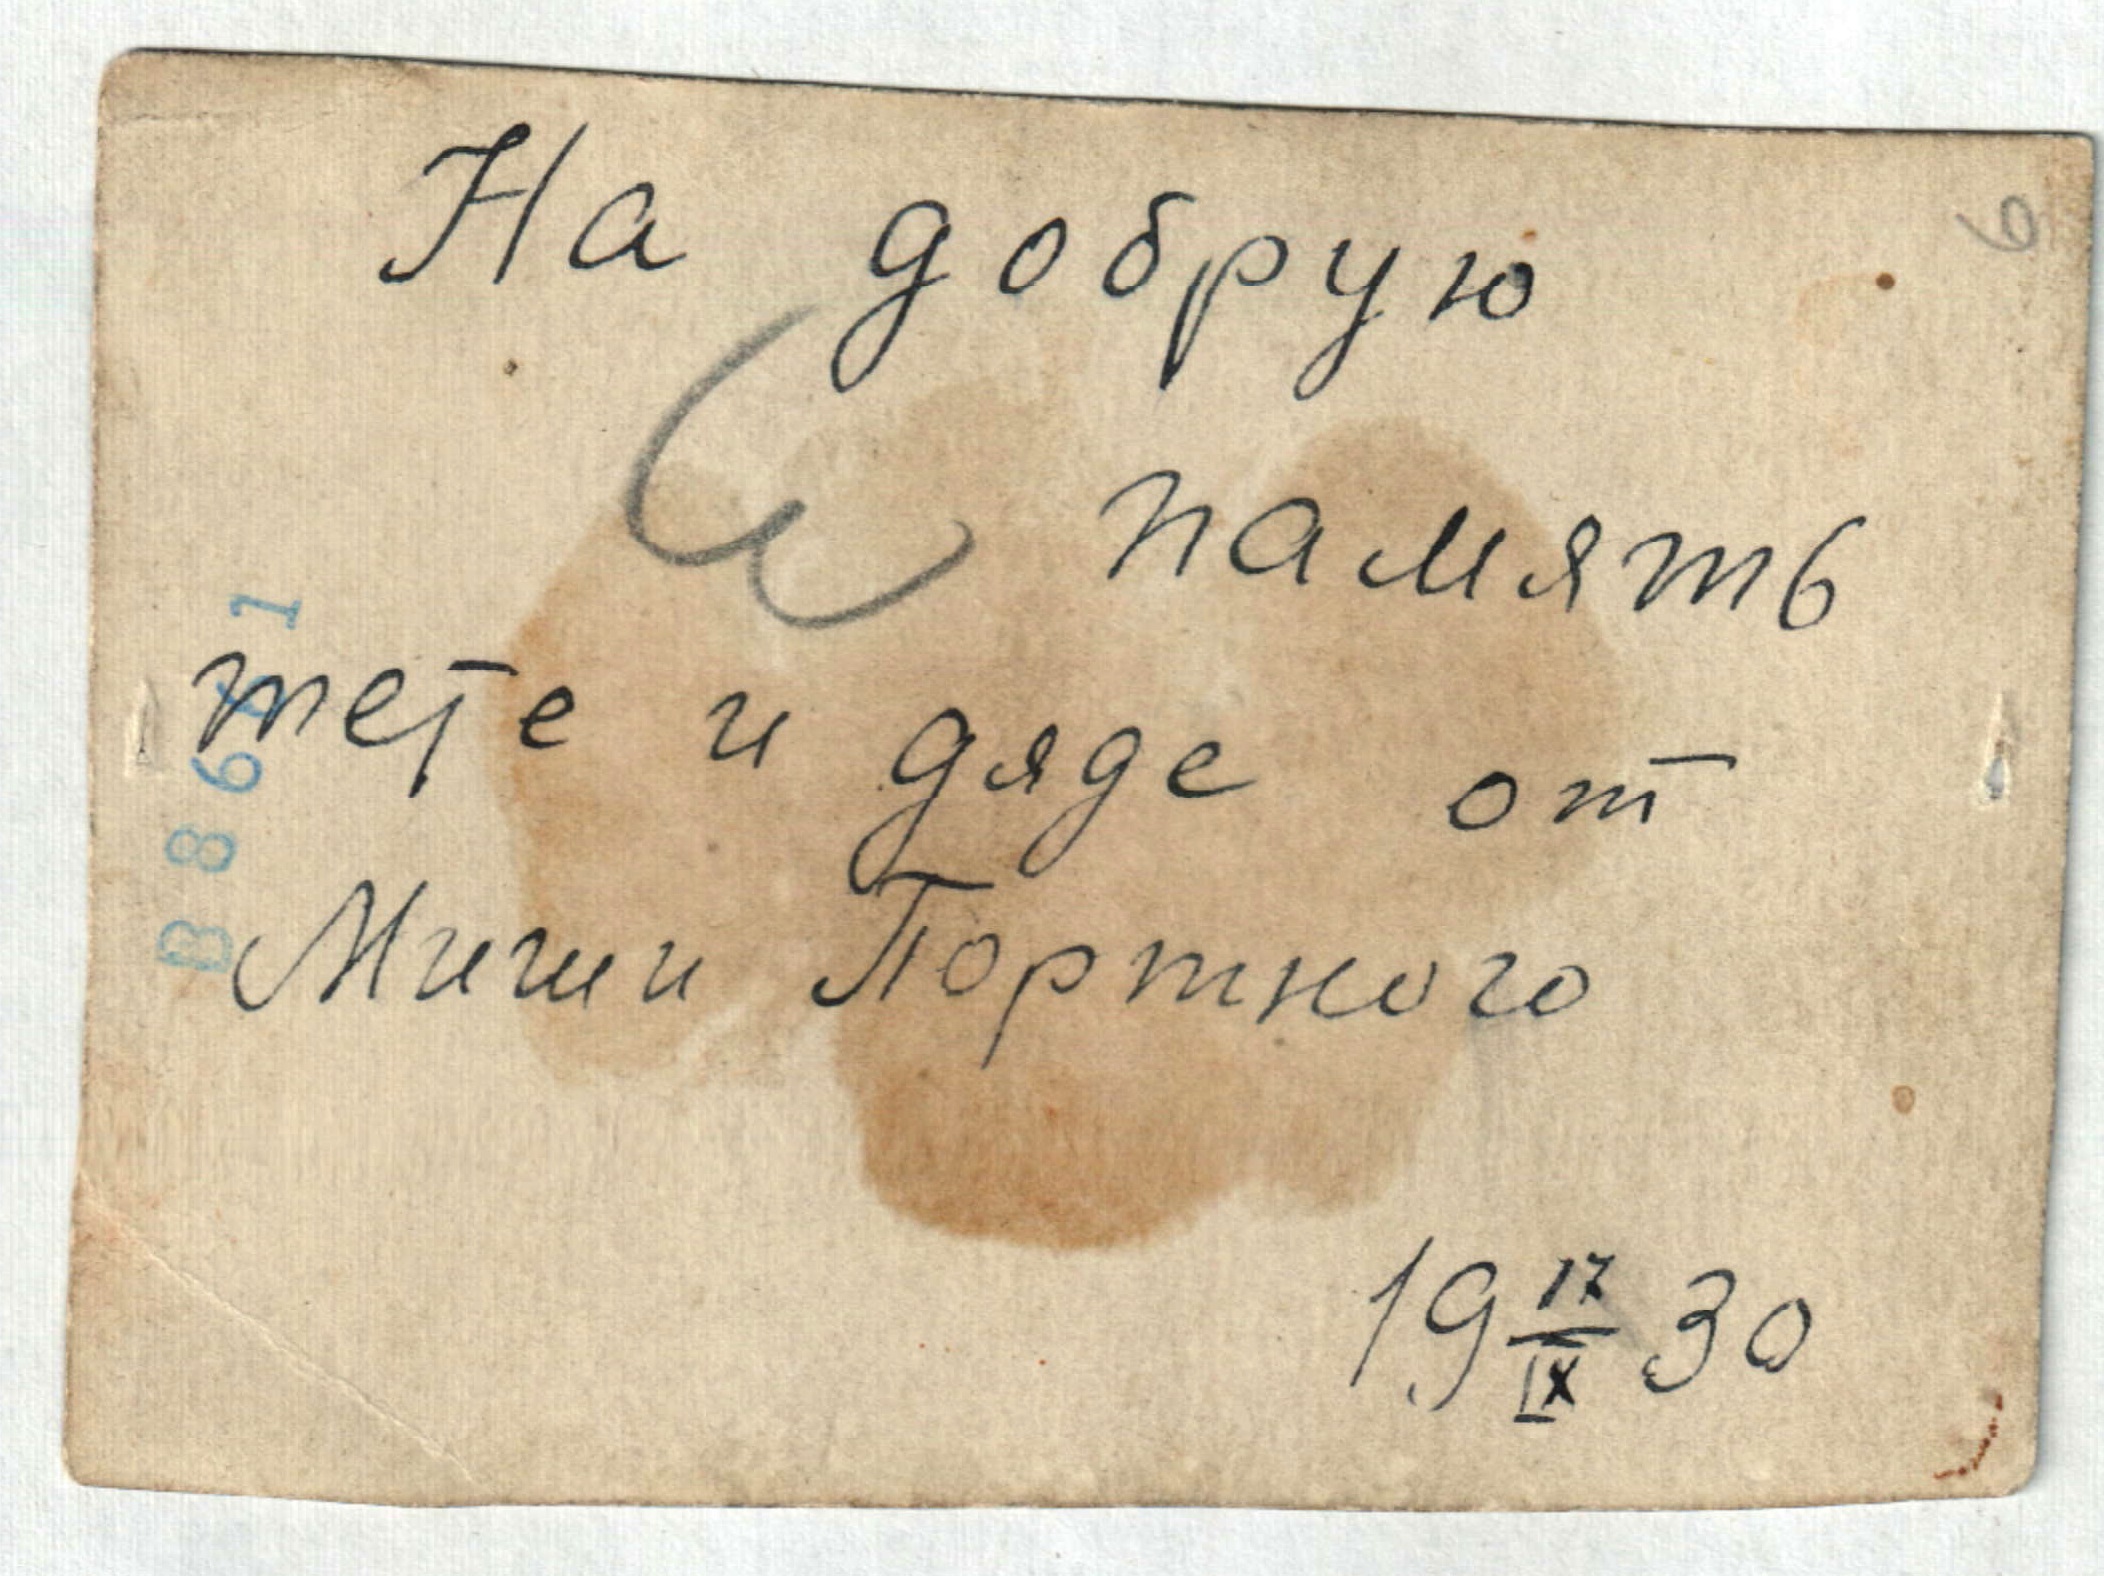 На добрую
память
тете и дяде от
Миши Портного
19 17/IX 30
6